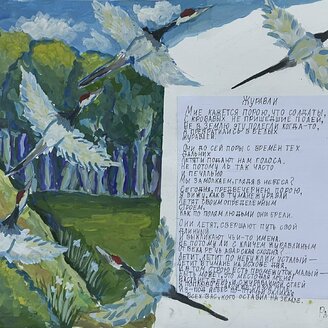 ЖУРАВЛИ
МНЕ КАЖЕТСЯ ПОРОЮ, ЧТО СОЛДАТЫ,
С КРОВАВЫХ НЕ ПРИШЕДШИЕ ПОЛЕЙ,
НЕ В ЗЕМЛЮ ЭТУ ПОЛЕГЛИ КОГДА-ТО,
А ПРЕВРАТИЛИСЬ В БЕЛЫХ
ЖУРАВЛЕЙ.
ОНИ ДО СЕЙ ПОРЫ С ВРЕМЁН ТЕХ
ДАЛЬНИХ
ЛЕТЯТ И ПОДАЮТ НАМ ГОЛОСА.
НЕ ПОТОМУ ЛЬ ТАК ЧАСТО
И ПЕЧАЛЬНО
МЫ ЗАМОЛКАЕМ, ГЛЯДЯ В НЕБЕСА?
СЕГОДНЯ, ПРЕДВЕЧЕРНЕЮ ПОРОЮ,
Я ВИЖУ, КАК В ТУМАНЕ ЖУРАВЛИ
ЛЕТЯТ СВОИМ ОПРЕДЕЛЁННЫМ
СТРОЕМ,
КАК ПО ПОЛЯМ ЛЮДЬМИ ОНИ БРЕЛИ.
ОНИ ЛЕТЯТ, СВЕРШАЮТ ПУТЬ СВОЙ
ДЛИННЫЙ
И ВЫКЛИКАЮТ ЧЬИ-ТО ИМЕНА.
НЕ ПОТОМУ ЛИ С КЛИЧЕМ ЖУРАВЛИНЫМ
ОТ ВЕКА РЕЧЬ АВАРСКАЯ СХОДНА?
ЛЕТИТ, ЛЕТИТ ПО НЕБУ КЛИН УСТАЛЫЙ —
ЛЕТИТ В ТУМАНЕ НА ИСХОДЕ ДНЯ,
И В ТОМ СТРОЮ ЕСТЬ ПРОМЕЖУТОК МАЛЫЙ —
БЫТЬ МОЖЕТ, ЭТО МЕСТО ДЛЯ МЕНЯ!
ВСЕХ ВАС, КОГО ОСТАВИЛ НА ЗЕМЛЕ.